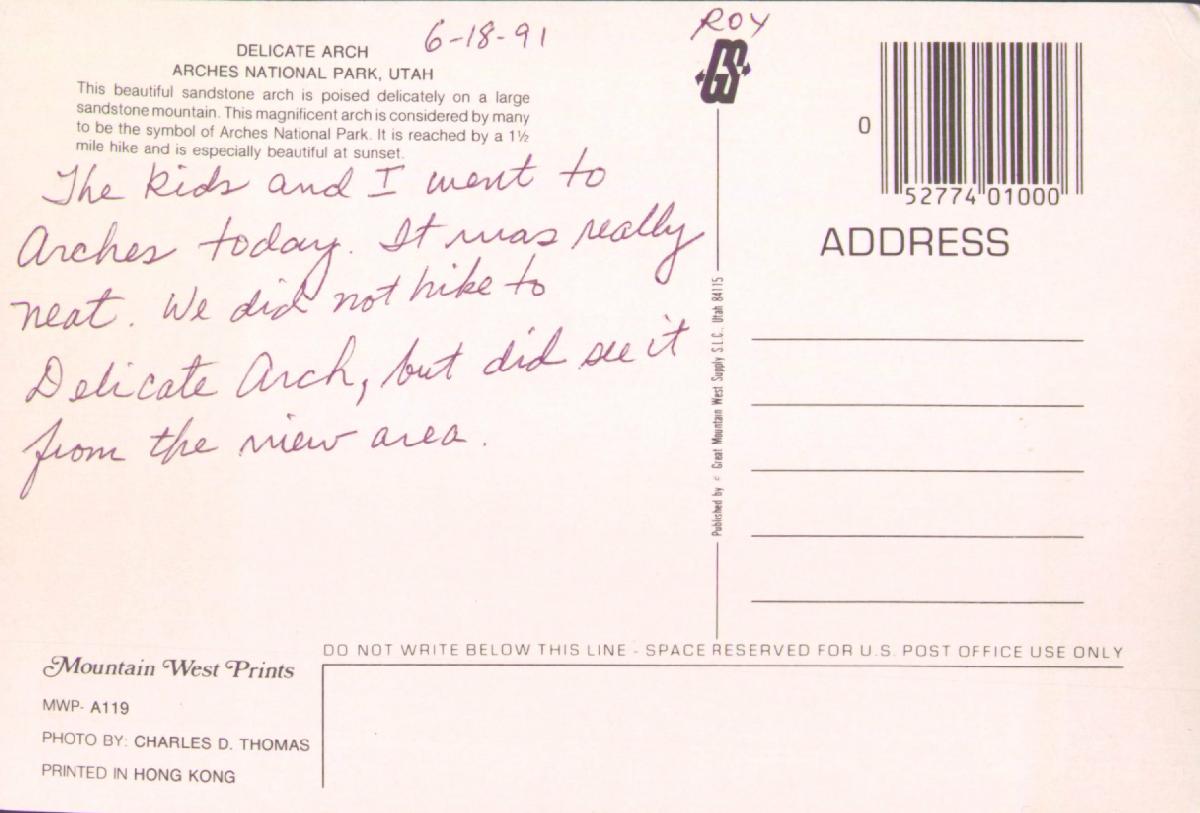 6-18-91
ROY
DELICATE ARCH
ARCHES NATIONAL PARK, UTAH
This beautiful sandstone arch is poised delicately on a large
sandstone mountain. This magnificent arch is considered by many
to be the symbol of Arches National Park. It is reached by a 1½
mile hike and is especially beautiful at sunset.
The kids and I went to
Arches today. It was really
neat. We did not hike to
Delicate Arch, but did see it
from the view area.
GS
0
52774 01000
ADDRESS
Published by © Great Mountain West Supply S.L.C., Utah 84115
DO NOT WRITE BELOW THIS LINE - SPACE RESERVED FOR U.S. POST OFFICE USE ONLY
Mountain West Prints
MWP- A119
PHOTO BY: CHARLES D. THOMAS
PRINTED IN HONG KONG